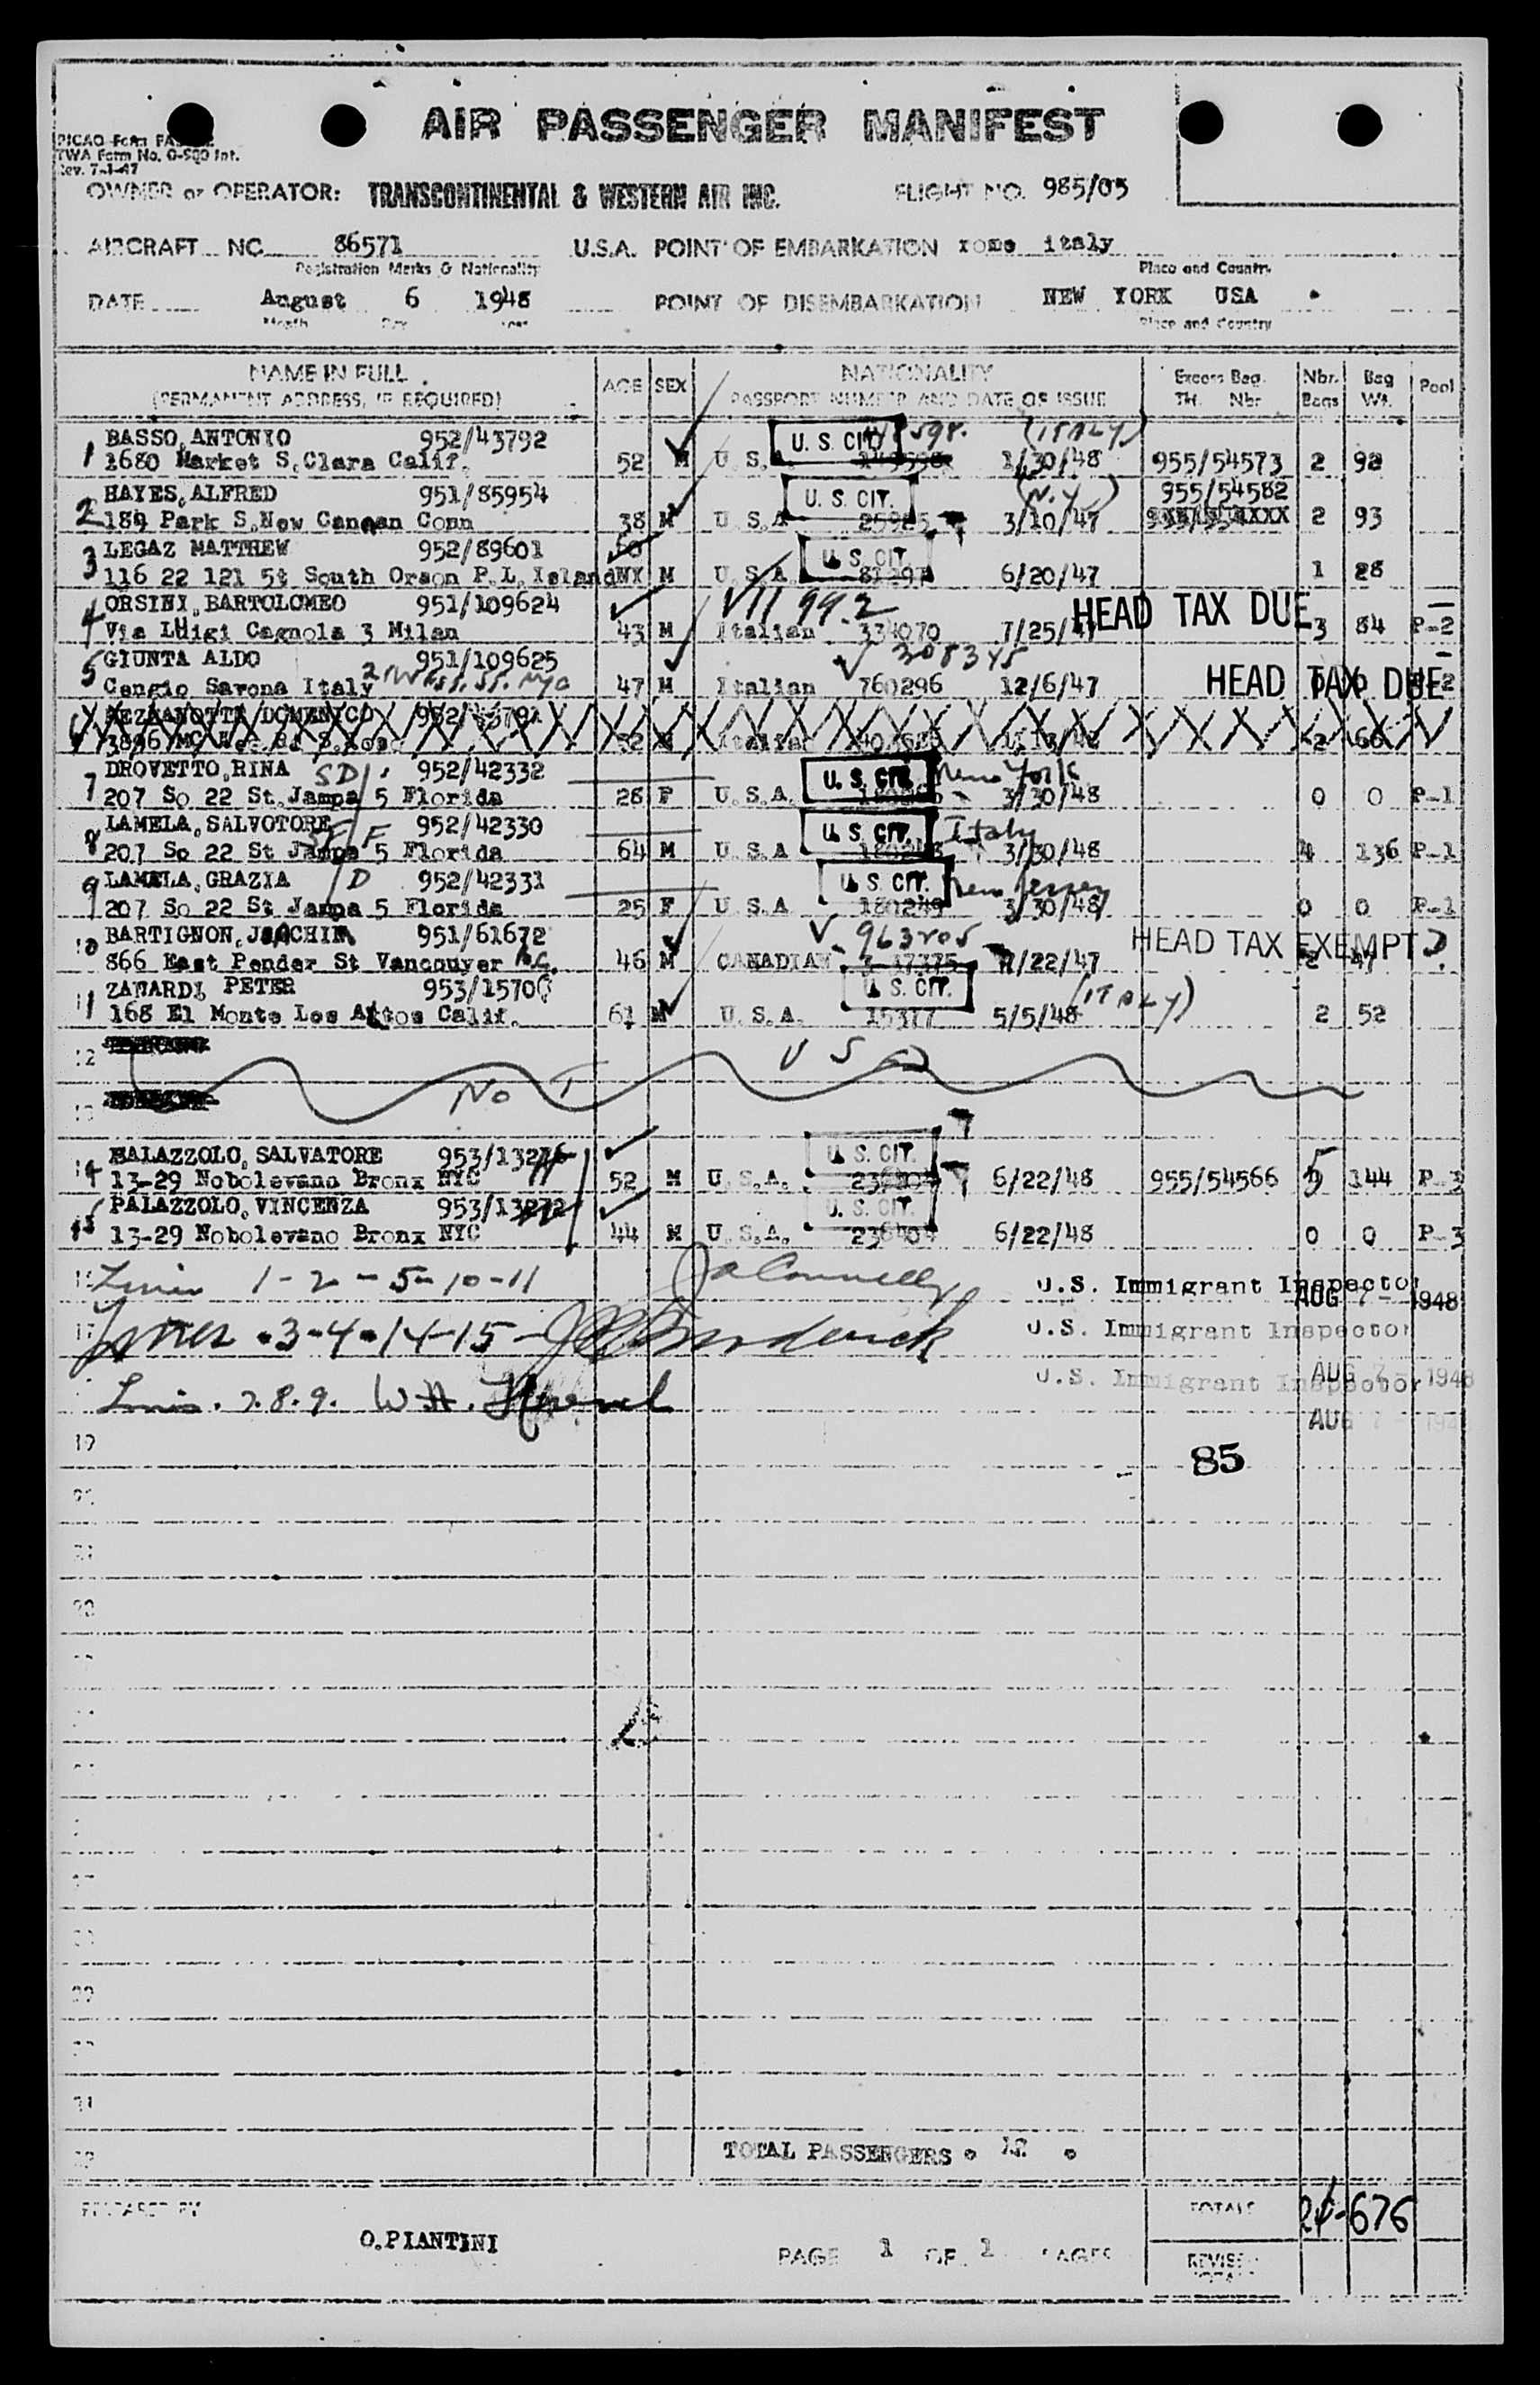 AIR PASSENGER MANIFEST
TWA Form No. 0-980 Int.
Rev. 7-1-47
OWNER or OPERATOR: TRANSCONTINENTAL & WESTERN AIR INC. FLIGHT NO. 985/05
AIRCRAFT NC 86571 U.S.A. POINT OF EMBARKATION rome italy
Registration Marks & Nationality Place and Country
DATE August 6 1948 POINT OF DISEMBARKATION NEW YORK USA
Month Day Year Place and Country
NAME IN FULL AGE SEX NATIONALITY Excess Bag. Nbr. Bag Pool
(PERMANENT ADDRESS, IF REQUIRED) PASSPORT NUMBER AND DATE OF ISSUE Tkt. Nbr Bags Wt.
BASSO, ANTONIO 952/43792 U. S. CIT. (ITALY)
1 1680 Market S.Clara Calif. 52 M U.S.A. 1/30/48 955/54573 2 92
HAYES, ALFRED 951/85954 U. S. CIT. (N.Y) 955/54582
2 189 Park S.New Canaan Conn 38 M U.S.A 3/10/47 2 93
LEGAZ MATTHEW 952/89601 60 U. S. CIT.
3 116 22 121 St South Orson P.L.Island NY M U.S.A. 6/20/47 1 28
ORSINI, BARTOLOMEO 951/109624 V1199.2 HEAD TAX DUE
4 Via LUigi Cagnola 3 Milan 43 M Italian 334070 7/25/47 3 84 P-2
GIUNTA ALDO 951/109625 308345
5 Cengio Savona Italy 47 M Italian 760296 12/6/47 HEAD TAX DUE
DOMENICO
DROVETTO, RINA SD 952/42332 U. S. CIT. New York
7 207 So 22 St.Jampa 5 Florida 28 F U.S.A. 3/30/48 0 0 P-1
LAMELA, SALVOTORE 952/42330 U. S. CIT. Italy
8 207 So 22 St Jampa 5 Florida 64 M U.S.A 3/30/48 4 136 P-1
LAMELA, GRAZIA D 952/42331 U. S. CIT. New Jersey
9 207 So 22 St Jampa 5 Florida 25 F U.S.A 180249 3/30/48 0 0 P-1
BARTIGNON, JOACHIM 951/61672 963205 HEAD TAX EXEMPT
10 866 East Pender St Vancouver B.C. 46 M CANADIAN 3 17375 /22/47 2 47
ZANARDI, PETER 953/15700 U. S. CIT. (ITALY)
11 168 El Monte Los Altos Calif. 61 M U.S.A. 15377 5/5/48 2 52
12 USED
13 NOT
PALAZZOLO, SALVATORE 953/13276 U. S. CIT.
14 13-29 Nobolevano Bronx NYC 52 M U.S.A. 6/22/48 955/54566 5 144 P-3
PALAZZOLO, VINCENZA 953/13272 U. S. CIT.
15 13-29 Nobolevano Bronx NYC 44 M U.S.A. 236404 6/22/48 0 0 P-3
16 Lines 1-2-5-10-11 U.S. Immigrant Inspector AUG 7- 1948
17 Lines 3-4-14-15- U.S. Immigrant Inspector
Lines. 7.8.9. W.H. U.S. Immigrant Inspector AUG 7- 1948
AUG 7 - 1948
19
85
TOTAL PASSENGERS 12
PREPARED BY TOTALS 24-676
O.PIANTINI
PAGE 1 OF 1 PAGES REVISED
TOTALS